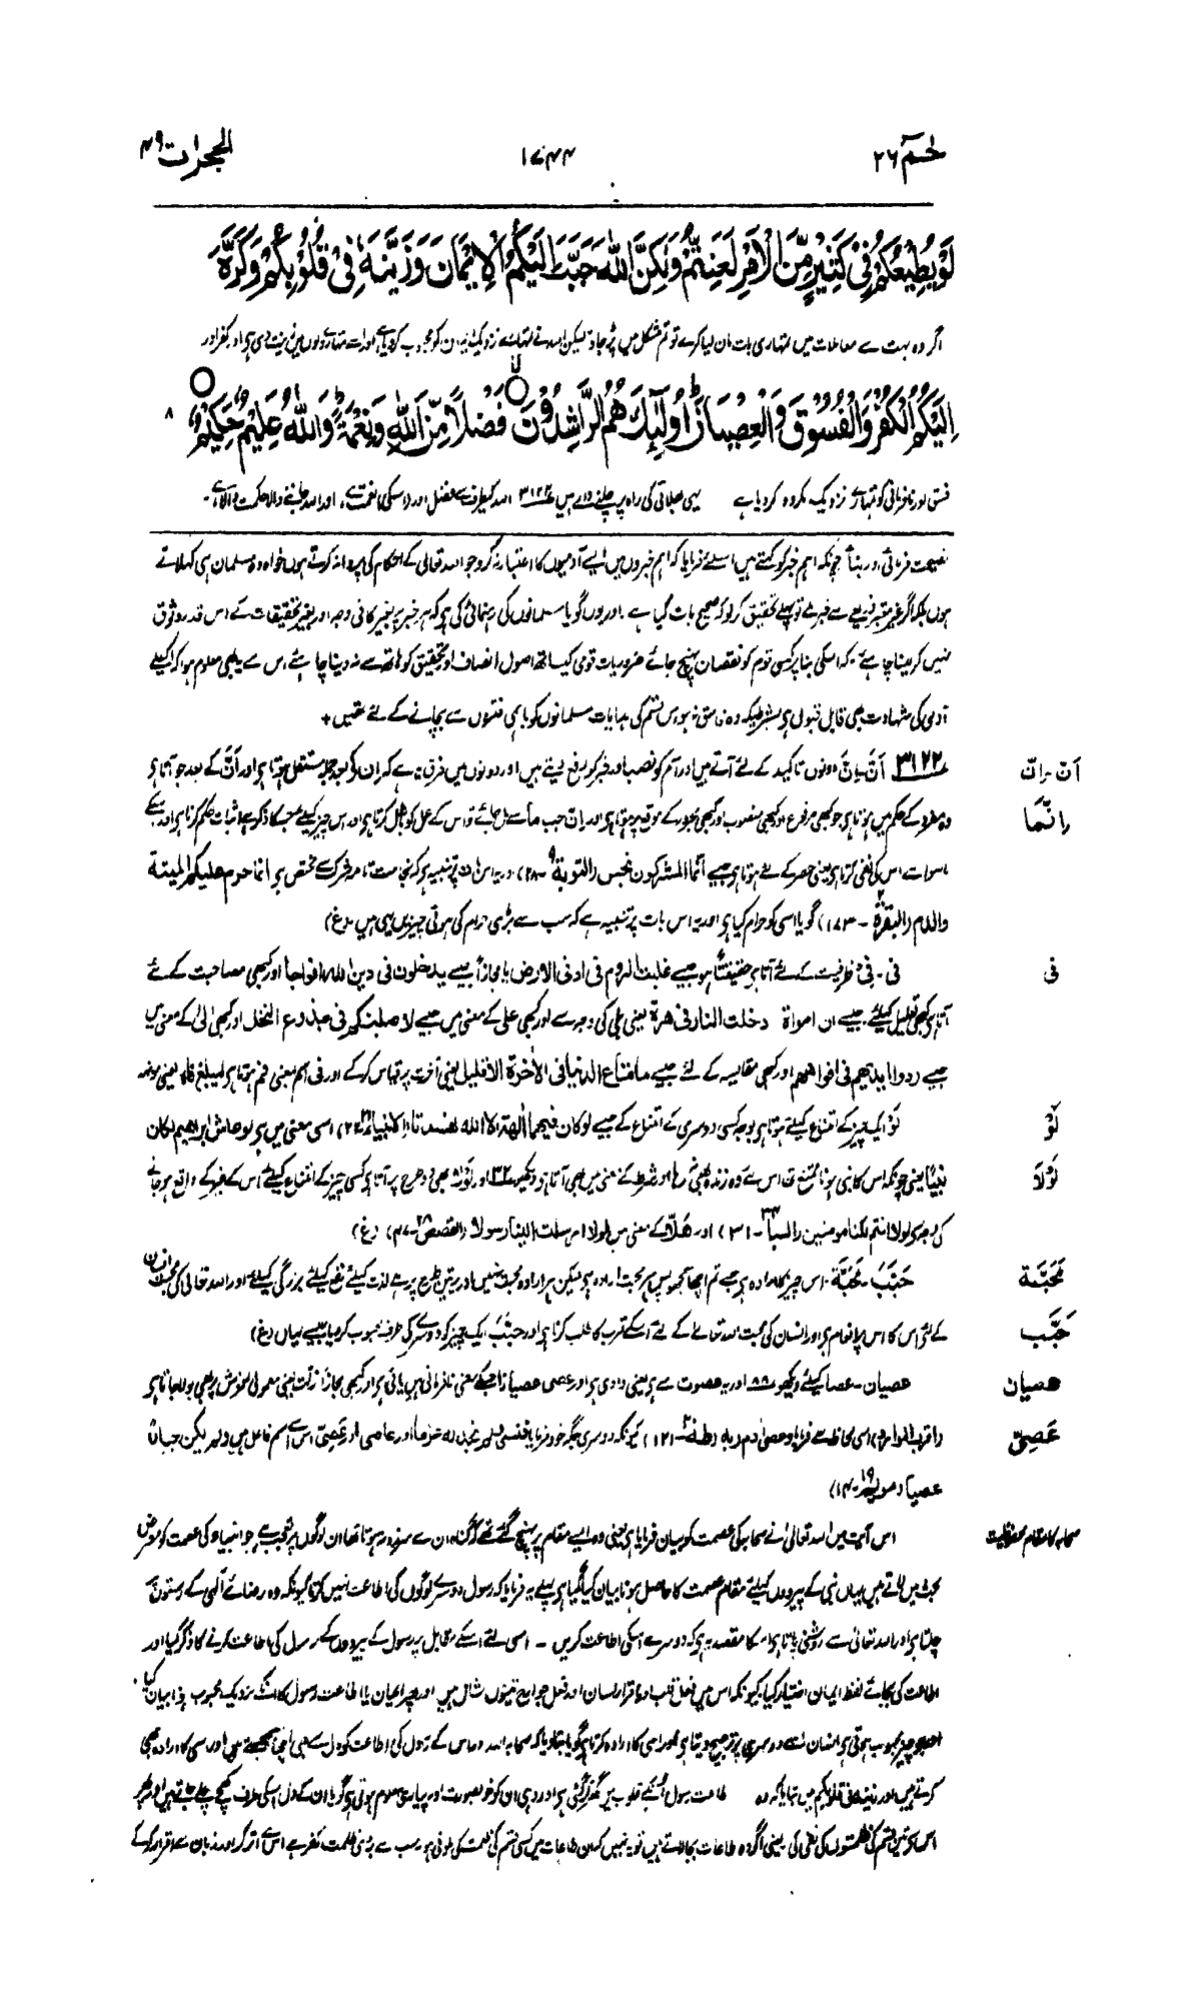 حٰمٓ ۲۶ ۱۷۴۴ الحجرات ۴۹
لَوْ يُطِيْعُكُمْ فِيْ كَثِيْرٍ مِّنَ الْاَمْرِ لَعَنِتُّمْ وَلٰكِنَّ اللّٰهَ حَبَّبَ اِلَيْكُمُ الْاِيْمَانَ وَزَيَّنَهٗ فِيْ قُلُوْبِكُمْ وَكَرَّهَ
اگر وہ بہت سے معاملات میں تمہاری بات مان لیا کرے تو تم مشکل میں پڑ جاؤ لیکن اللہ نے تمہارے نزدیک ایمان کو محبوب کر دیا ہے اور اسے تمہارے دلوں میں زینت دی ہے اور کفر اور
اِلَيْكُمُ الْكُفْرَ وَالْفُسُوْقَ وَالْعِصْيَانَ اُولٰٓئِكَ هُمُ الرّٰشِدُوْنَ فَضْلًا مِّنَ اللّٰهِ وَنِعْمَةً وَاللّٰهُ عَلِيْمٌ حَكِيْمٌ ۸
فسق اور نافرمانی کو تمہارے نزدیک مکروہ کر دیا ہے یہی بھلائی کی راہ پر چلنے والے ہیں ۳۱۲۲ اللہ کی طرف سے فضل اور اس کی نعمت ہے، اور اللہ جاننے والا حکمت والا ہے۔
نصیحت فرمائی اور نبأ چونکہ اہم خبر کو کہتے ہیں اسلئے فرمایا کہ اہم خبروں میں ایسے آدمیوں کا اعتبار نہ کرو جو اللہ تعالیٰ کے احکام کی پروا نہ کرتے ہوں خواہ وہ مسلمان ہی کہلاتے
ہوں بلکہ اگر غیر معتبر ذریعے سے خبر ملے تو پہلے تحقیق کر لو کہ صحیح بات کیا ہے۔ اور یوں گویا مسلمانوں کی رہنمائی کی ہے کہ ہر خبر پر بغیر کافی وجہ اور بغیر تحقیقات کے اس قدر وثوق
نہیں کر لینا چاہئے۔ کہ اسکی بنا پر کسی قوم کو نقصان پہنچ جائے ضروریات قومی کیساتھ اصول انصاف اور تحقیق کو ہاتھ سے نہ دینا چاہئے، اس سے یہ بھی معلوم ہوا کہ اکیلے
آدمی کی شہادت بھی قابل قبول ہے بشرطیکہ وہ فاسق نہ ہو، اس قسم کی ہدایات مسلمانوں کو باہمی فتنوں سے بچانے کے لئے تھیں +
اَنّ ۔ اِنّ ۳۱۲۲ اَنَّ ۔ اِنَّ دونوں تاکید کے لئے آتے ہیں اور اسم کو نصب اور خبر کو رفع دیتے ہیں اور دونوں میں فرق یہ ہے کہ اِن کے بعد جملہ مستقل ہوتا ہے اور اَنَّ کے بعد جو آتا ہے
اِنَّمَا وہ مفرد کے حکم میں ہوتا ہے جو کبھی مرفوع اور کبھی منصوب اور کبھی مجرور کے موقعہ پر ہوتا ہے اور اِن جب ما سے مل جائے تو اس کے عمل کو باطل کرتا ہے اور اس چیز کیلئے جسکا ذکر ہے اثبات حکم کرتا ہے اور اسکے
ماسوا سے اس کی نفی کرتا ہے یعنی حصر کے لئے ہوتا ہے جیسے انما المشرکون نجس (التوبة ۹-۲۸) اور یہ اس بات پر تنبیہ ہے کہ نجاست تامہ شرک سے مختص ہے انما حرم علیکم المیتة
والدم (البقرة ۲-۱۷۳) گویا اسی کو حرام کیا ہے اور یہ اس بات پر تنبیہ ہے کہ سب سے بڑی حرام کی ہوئی چیزیں یہی ہیں (غ)
فی فی۔ فی ظرفیت کے لئے آتا ہے حقیقتاً ہو جیسے غلبت الروم فی ادنی الارض یا مجازاً جیسے یدخلون فی دین اللہ افواجا اور کبھی مصاحبت کے لئے
آتا ہے کبھی تعلیل کیلئے۔ جیسے ان امراة دخلت النار فی ھرة یعنی بلی کی وجہ سے اور کبھی علی کے معنی میں جیسے لاصلبنکم فی جذوع النخل اور کبھی الیٰ کے معنی میں
جیسے ردوا ایدیھم فی افواھھم اور کبھی مقایسہ کے لئے جیسے ما متاع الدنیا فی الاٰخرة الا قلیل یعنی آخرت پر قیاس کر کے اور فی اسم بمعنی فم ہوتا ہے لیبلغ فاہ یعنی مونہہ
لَوْ لَوْ ایک چیز کے امتناع کیلئے ہوتا ہے بوجہ کسی دوسری کے امتناع کے جیسے لوکان فیھما اٰلھة الا اللہ لفسدتا (الانبیاء ۲۱-۲۲) اسی معنی میں ہے لو عاش ابراھیم لکان
لَوْلَا نبیًّا یعنی چونکہ اس کا نبی ہونا ممتنع تھا اس لئے وہ زندہ بھی نہ رہا اور شرط کے معنی میں بھی آتا ہے دیکھو اور لَوْلَا بھی دو طرح پر آتا ہے کسی چیز کے امتناع کیلئے اس کے غیر کے واقع ہو جانے
کی وجہ سے لولا انتم لکنا مومنین (السبا ۳۴-۳۱) اور ھَلّا کے معنی میں لولا ارسلت الینا رسولا (القصص ۲۸-۴۷) (غ)
مَحَبَّة حَبَّبَ۔ مَحَبَّة۔ اس چیز کا ارادہ ہے جسے تم اچھا سمجھو پس ہر محبت ارادہ ہے لیکن ہر ارادہ محبت نہیں اور یہ تین طرح پر ہے لذت کیلئے نفع کیلئے بزرگی کیلئے اور اللہ تعالیٰ کی محبت انسان
حَبَّب کے لئے اس کا اس پر انعام ہے اور انسان کی محبت اللہ تعالےٰ کے لئے اسکے قرب کا طلب کرنا ہے اور حبَّبَ ایک چیز کو دوسرے کی طرف محبوب کر دیا جیسے یہاں (غ)
عصیان عصیان۔ عصا کیلئے دیکھو ۸۸ اور یہ عصوت سے ہے یعنی وادی ہے اور عصی عصیاناً جسکے معنی نافرمانی ہیں یائی ہے اور کبھی مجازاً زلت یعنی معمولی لغزش پر بھی بولا جاتا ہے
عَصِیّ (اقرب الموارد) اسی لحاظ سے فرمایا وعصیٰ اٰدم ربه (طٰہٰ ۲۰-۱۲۱) کیونکہ دوسری جگہ خود فرمایا فنسی ولم نجد له عزما اور عاصی اور عَصِیّ اس سے اسم فاعل ہیں ولم یکن جبارا
عصیا (مریم ۱۹-۱۴)
صحابہ کا مقام محفوظیت اس آیت میں اللہ تعالیٰ نے صحابہ کی عصمت کو بیان فرمایا ہے یعنی وہ ایسے مقام پر پہنچ گئے تھے کہ گناہ ان سے سرزد نہ ہوتا تھا ان لوگوں پر تعجب ہے جو انبیاء کی عصمت کو معرض
بحث میں لاتے ہیں یہاں نبی کے پیروؤں کیلئے مقام عصمت کا حاصل ہونا بیان کیا گیا ہے پہلے یہ فرمایا کہ رسول دوسرے لوگوں کی اطاعت نہیں کرتا کیونکہ وہ رضائے الٰہی کے رستوں پر
چلتا ہے اور اللہ تعالیٰ سے روشنی پاتا ہے اس کا مقصد یہ ہے کہ دوسرے اسکی اطاعت کریں۔ اسی لئے اسکے مقابل پر رسول کے پیروؤں کے رسول کی اطاعت کرنے کا ذکر کیا اور
اطاعت کی بجائے لفظ ایمان اختیار کیا کیونکہ اس میں فعل قلب اور اقرار لسان اور فعل جوارح تینوں شامل ہیں اور پھر ایمان یا اطاعت رسول کا انکے نزدیک محبوب ہونا بیان کیا۔
اور جو چیز محبوب ہوتی ہے انسان اسے دوسری پر ترجیح دیتا ہے اور اسی کا ارادہ کرتا ہے گویا بتا دیا کہ صحابہ اللہ اور اس کے رسول کی اطاعت کو دل سے بھی اچھی سمجھتے ہیں اور اسی کا ارادہ بھی
کرتے ہیں اور زینه فی قلوبکم میں بتایا کہ وہ طاعت رسول انکے قلوب میں گھر کر گئی ہے اور وہ ہی ان کو خوبصورت اور پیاری معلوم ہوتی ہے گویا ان کے دل اسکی طرف کھچے چلے جاتے ہیں اور پھر
اس کے تین قسم کی ظلمتوں کی نفی کی یعنی اگر وہ طاعات بجا لاتے ہیں تو یہ نہیں کہ ان طاعات میں کسی قسم کی ظلمت کی ملونی ہو سب سے بڑی ظلمت کفر ہے اس سے اتر کر اور زبان سے اقرار کر کے